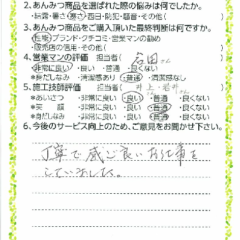 2. あんみつ商品を選ばれた際の悩みは何でしたか。
・結露・暑さ・寒さ・西日・防犯・騒音・その他( )
3. あんみつ商品をご購入頂いた最終判断は何ですか。
・性能・ブランド・クチコミ・営業マンの勧め
・販売店の信用・その他( )
4. 営業マンの評価 担当者( 石田さん )
・非常に良い・良い・普通・良くない
*身だしなみ ・清潔感あり・普通・清潔感なし
5. 施工技術評価 担当者( 井上・岩井 )
*あいさつ ・非常に良い・良い・普通・良くない
*笑顔 ・非常に良い・良い・普通・良くない
*身だしなみ ・非常に良い・良い・普通・良くない
6. 今後のサービス向上のため、ご意見をお聞かせ下さい。
丁寧で感じ良いお仕事を
していました。